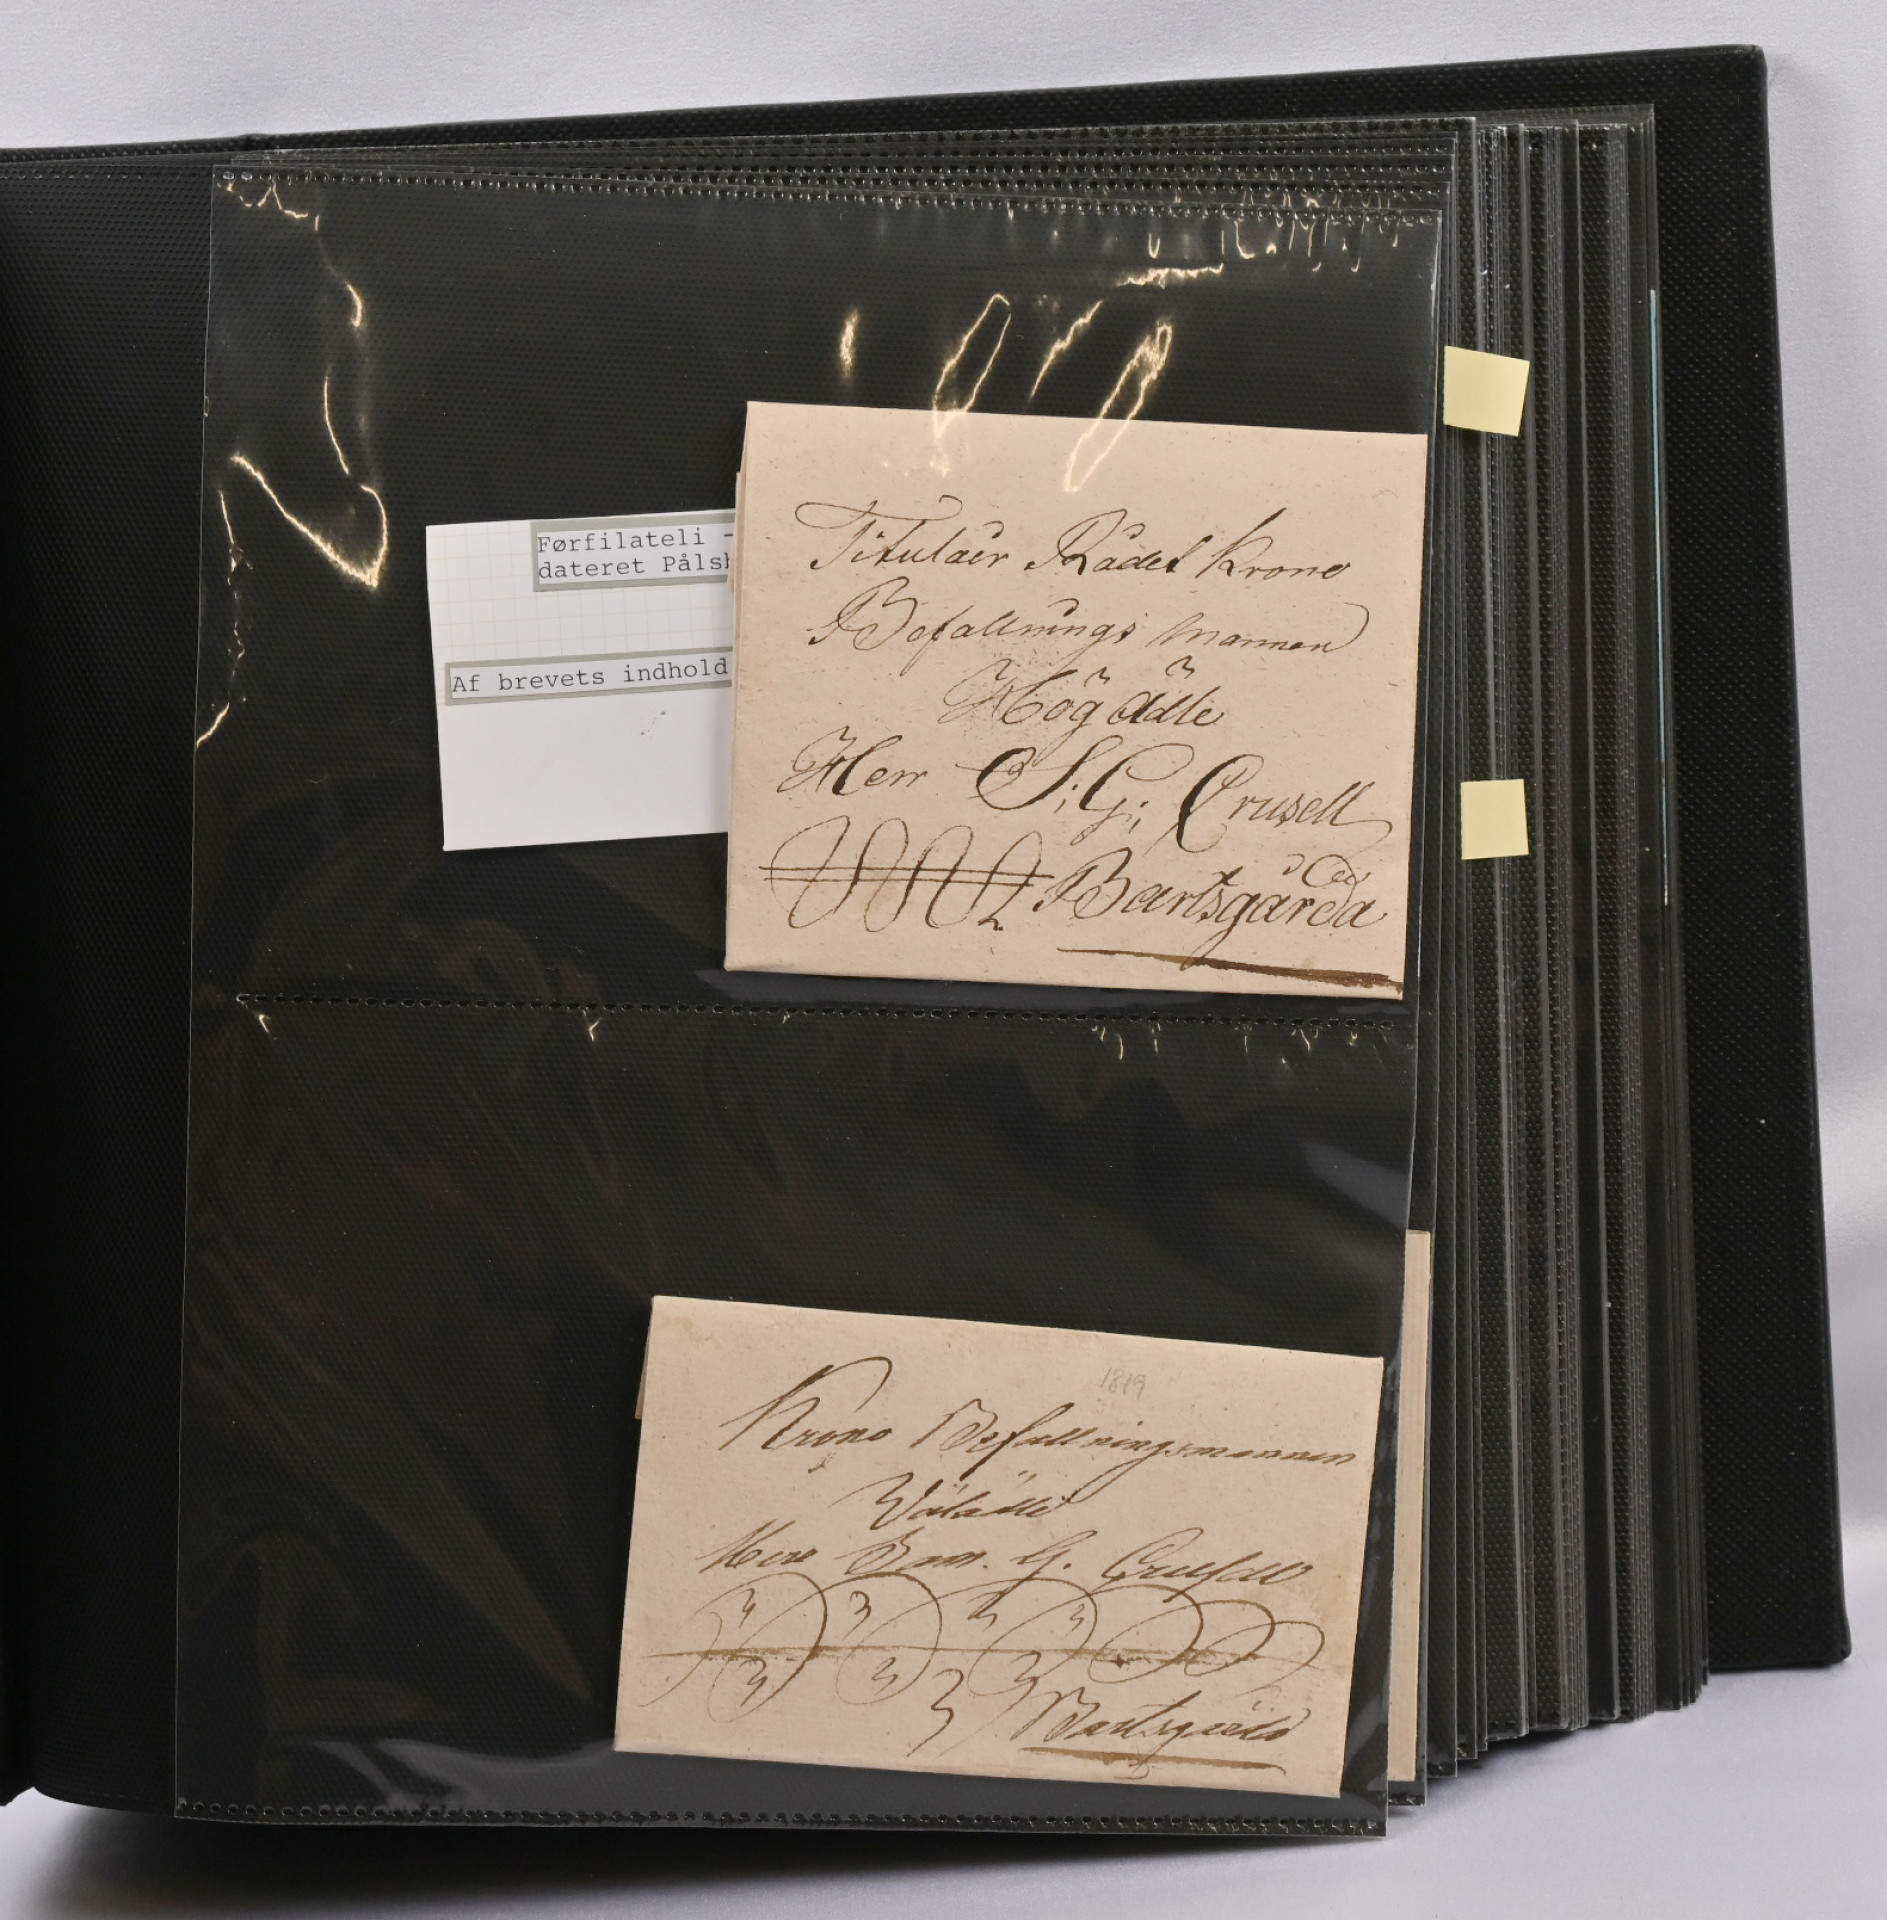 Førfilateli -
dateret Påls
Af brevets indhold
Titulair Rådet Krono
Befallnings mannen
Högädle
Herr S; G; Crusell
Bartsgårda
1819
Krono Befallningsmannen
Wälädle
Herr Sam. G. Crusell
Bartsgårda